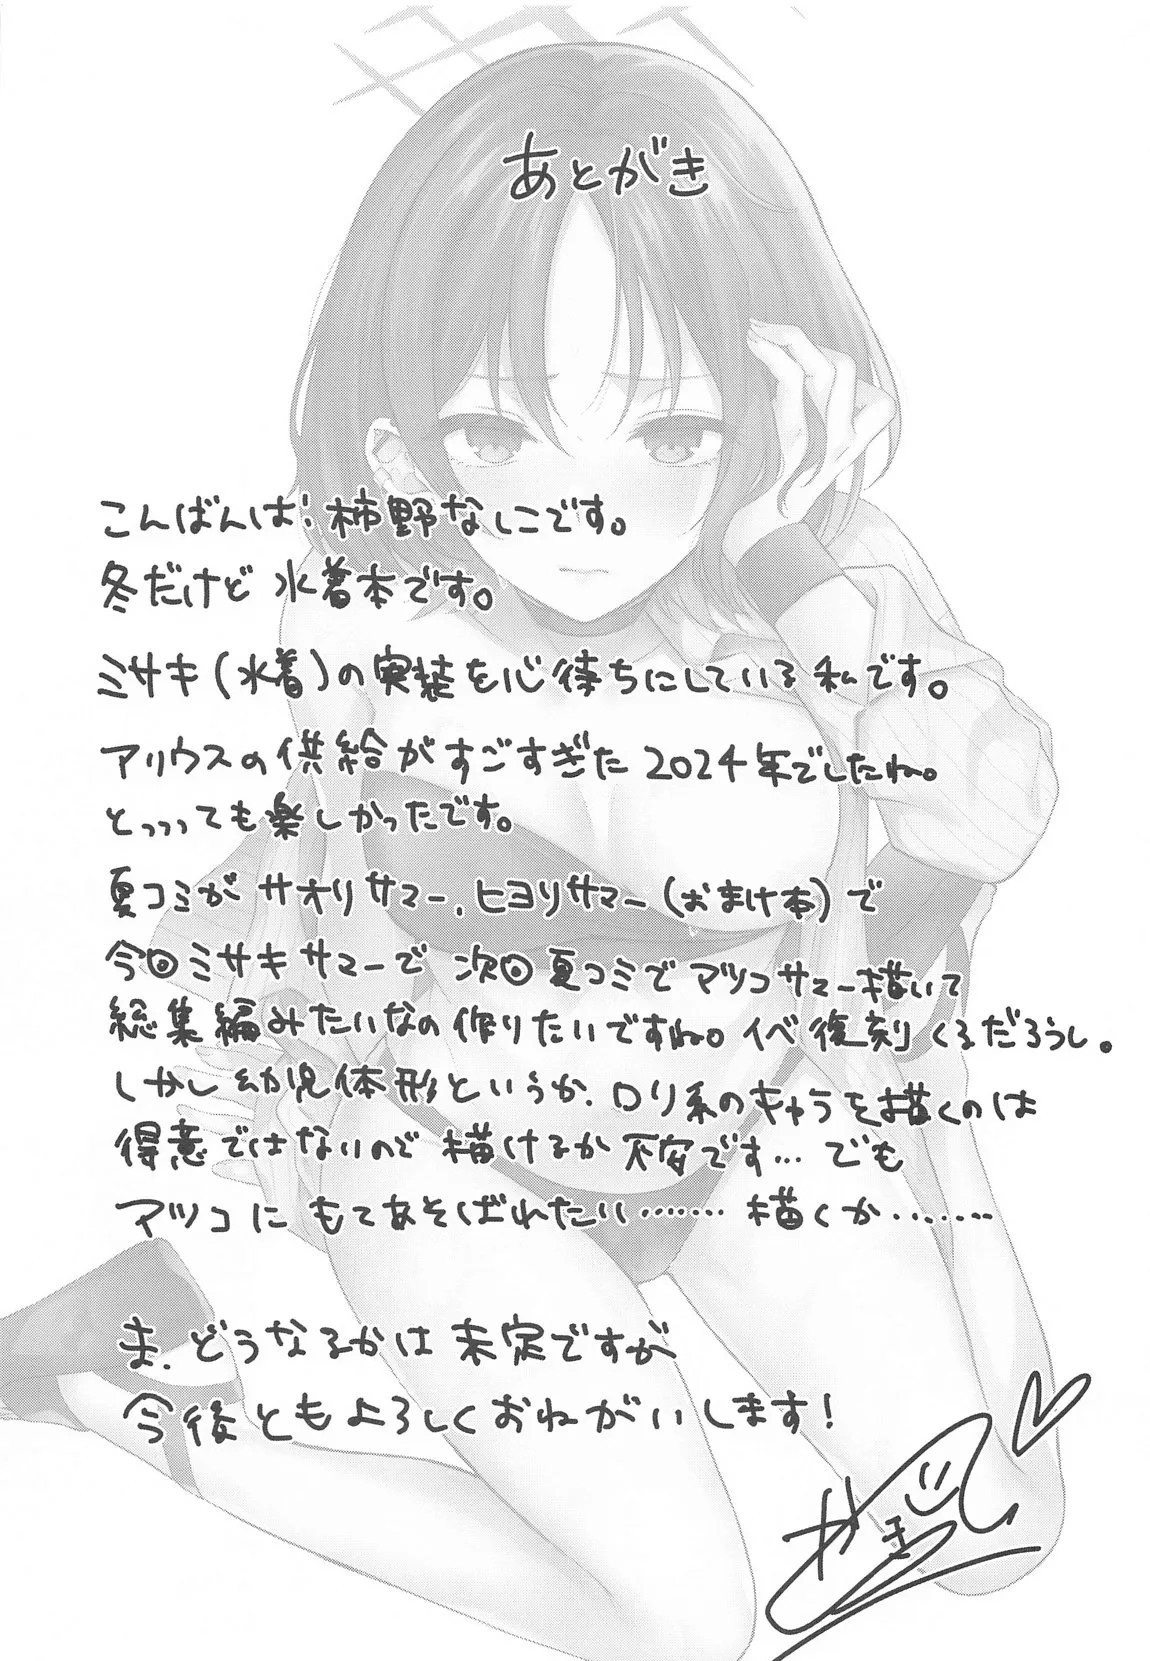 あとがき
こんばんは!柿野なしこです。
冬だけど 水着本です。
ミサキ(水着)の実装を心待ちにしている私です。
アリウスの供給がすごすぎた2024年でしたね。
とっっっても楽しかったです。
夏コミが サオリサマー、ヒヨリサマー(おまけ本)で
今回ミサキサマーで 次回夏コミでアツコサマー描いて
総集編みたいなの作りたいですね。イベ復刻くるだろうし。
しかし幼児体形というか、ロリ系のキャラを描くのは
得意ではないので描けるか不安です…でも
アツコにもてあそばれたい……… 描くか………
ま、どうなるかは未定ですが
今後ともよろしくおねがいします!